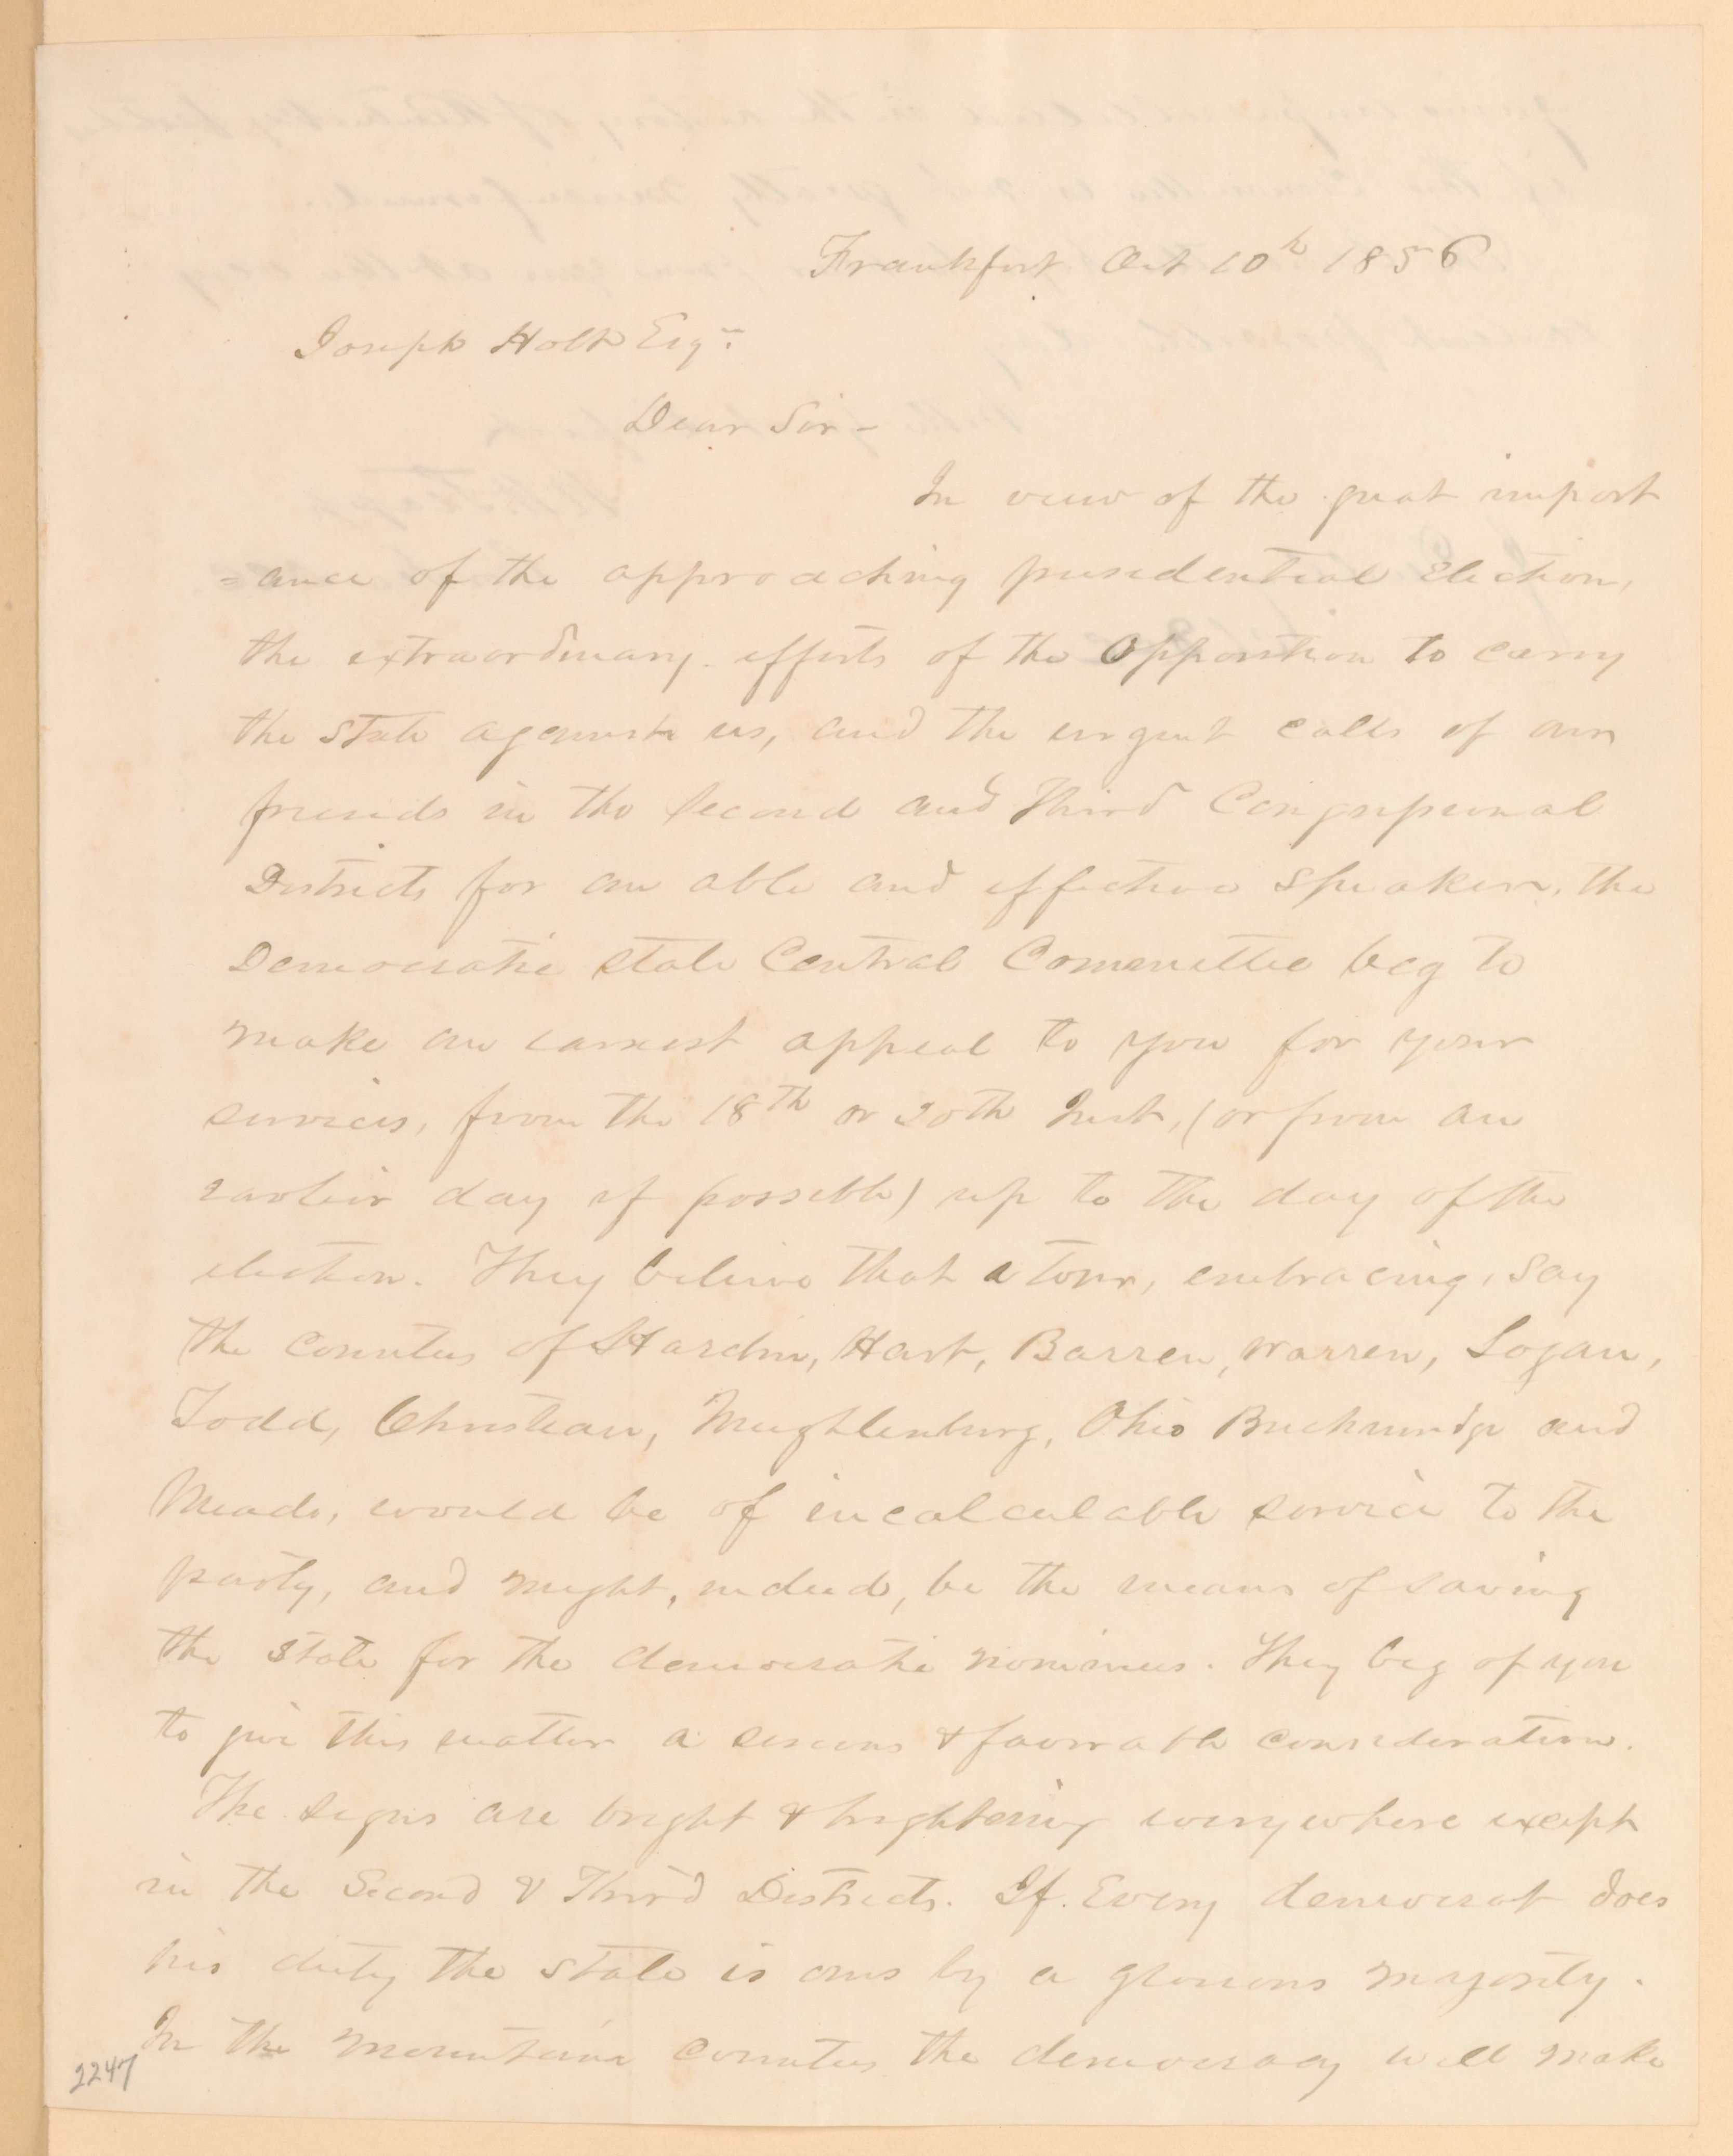 Frankfort Oct 10h 1856
Joseph Holt Esqr
Dear Sir -
In view of the great import
=ance of the approaching presidential Election,
the extraordinary efforts of the Opposition to carry
the State against us, and the urgent calls of our
friends in the Second and Third Congressional
Districts for an able and effective Speaker, the
Democratic State Central Committee beg to
make an earnest appeal to you for your
services, from the 18th or 20th Inst, (or from an
earlier day if possible) up to the day of the
election. They believe that a tour, embracing, say
the counties of Hardin, Hart, Barren, Warren, Logan,
Todd, Christian, Mughlenburg, Ohio Breckinridge and
Meade, would be of incalculable service to the
party, and might, indeed, be the means of saving
the State for the democratic nominees. They beg of you
to give this matter a serious & favorable consideration.
The signs are bright & brightening everywhere except
in the Second & Third Districts. If Every democrat does
his duty the State is ours by a glorious majority.
In the mountain counties the democracy will make
2247